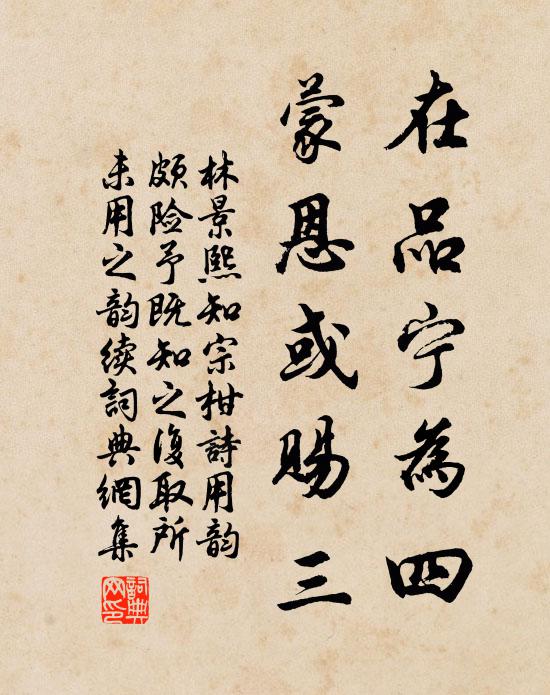 在品宁為四
蒙恩或賜三
林景熙知宗柑詩用韵
頗险予既知之復取所
未用之韵续詞典網集
詞典网印